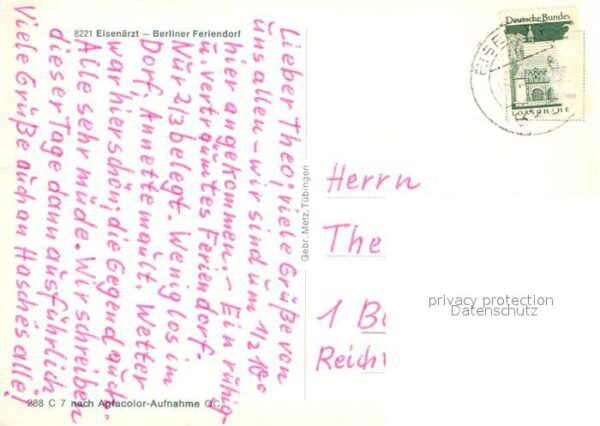 8221 Eisenärzt – Berliner Feriendorf
Lieber Theo, viele Grüße von
uns allen – wir sind um 1/2 18°°
hier angekommen. – Ein ruhig-
u. verträumtes Feriendorf.
Nur 2/3 belegt. Wenig los im
Dorf, Annette mault. Wetter
war hier schön, die Gegend auch.
Alle sehr müde. Wir schreiben
dieser Tage dann ausführlich
Viele Grüße auch an Haschés alle!
288 C 7 nach Agfacolor-Aufnahme GC
Gebr. Metz, Tübingen
Deutsche Bundes
LORSCH
Herrn
The
1 B
Reich
privacy protection
Datenschutz